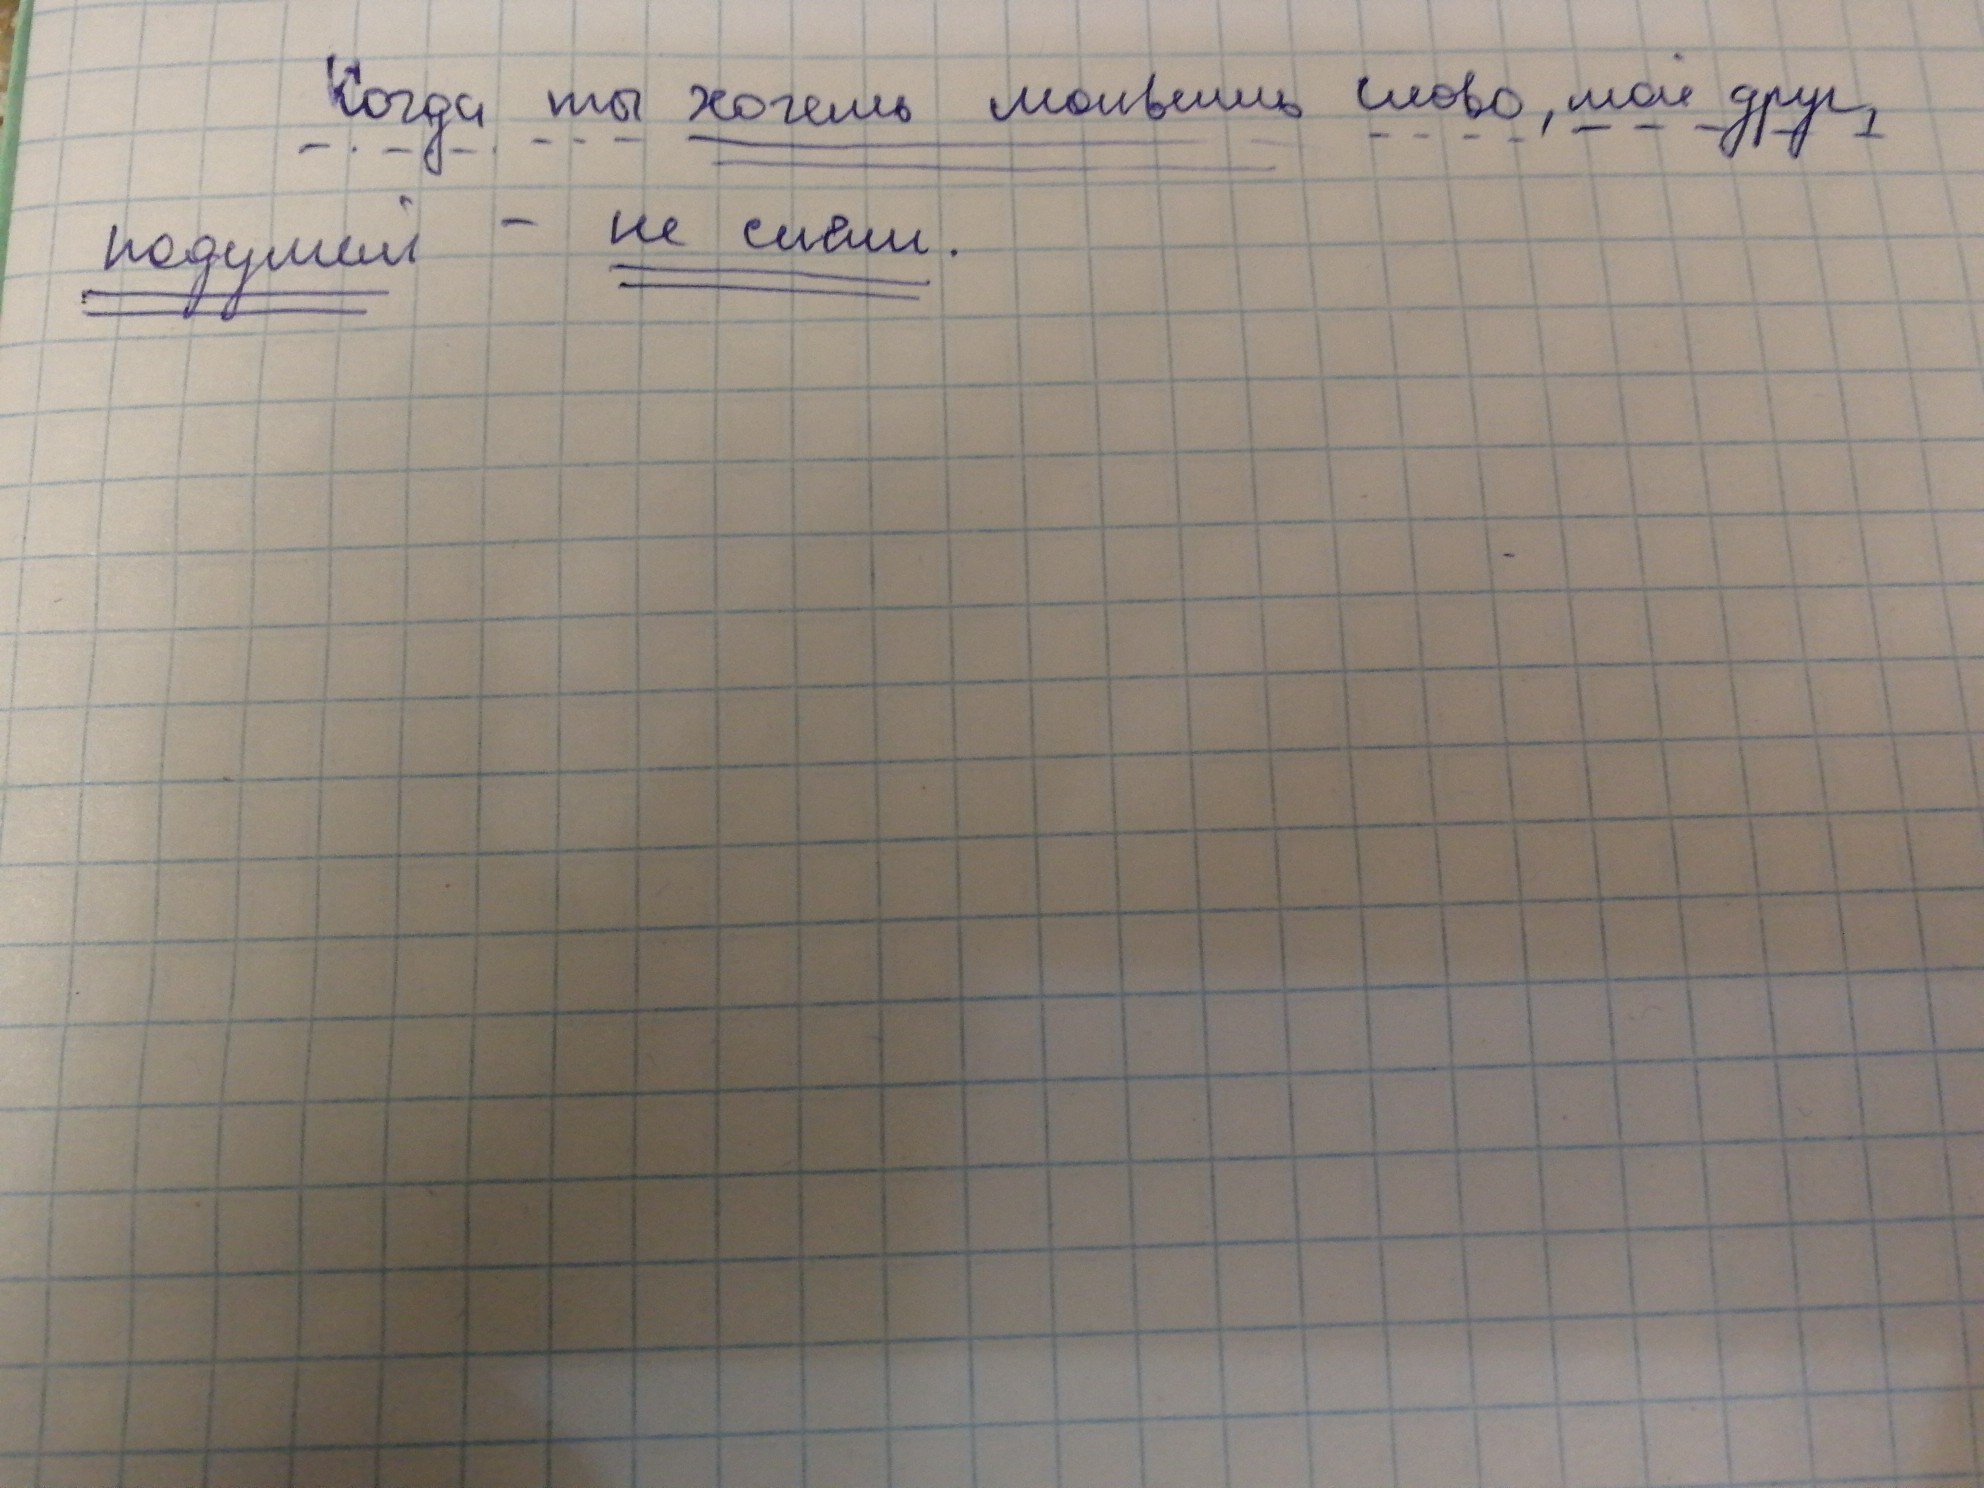 Когда ты хочешь молвить слово, мой друг,
подумай - не спеши.